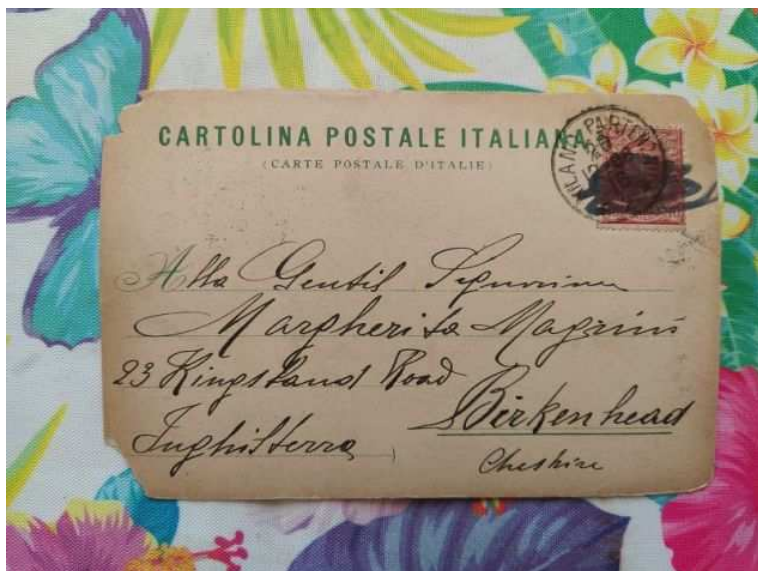 CARTOLINA POSTALE ITALIANA
(CARTE POSTALE D'ITALIE)
MILANO PARTENZA
Alla Gentil Signorina
Margherita Magrini
23 Kingsland Road
Birkenhead
Inghilterra
Cheshire